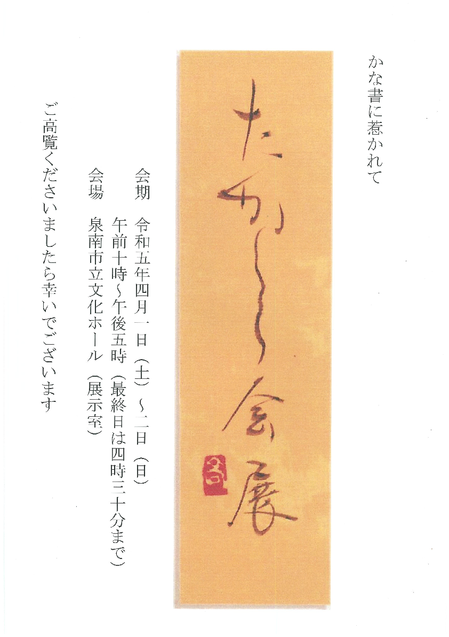 かな書に惹かれて
たかくら会展
会期　令和五年四月一日（土）～二日（日）
午前十時～午後五時（最終日は四時三十分まで）
会場　泉南市立文化ホール（展示室）
ご高覧くださいましたら幸いでございます